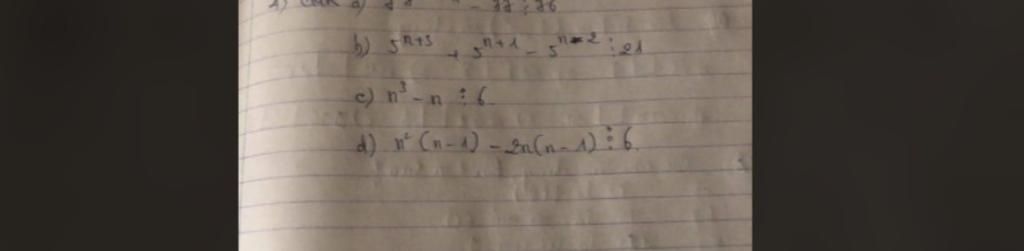 1) CMR a)
b) 5^{n+3} + 5^{n+1} - 5^{n-2} ⋮ 21
c) n³ - n ⋮ 6
d) n² (n-1) - 2n(n-1) ⋮ 6